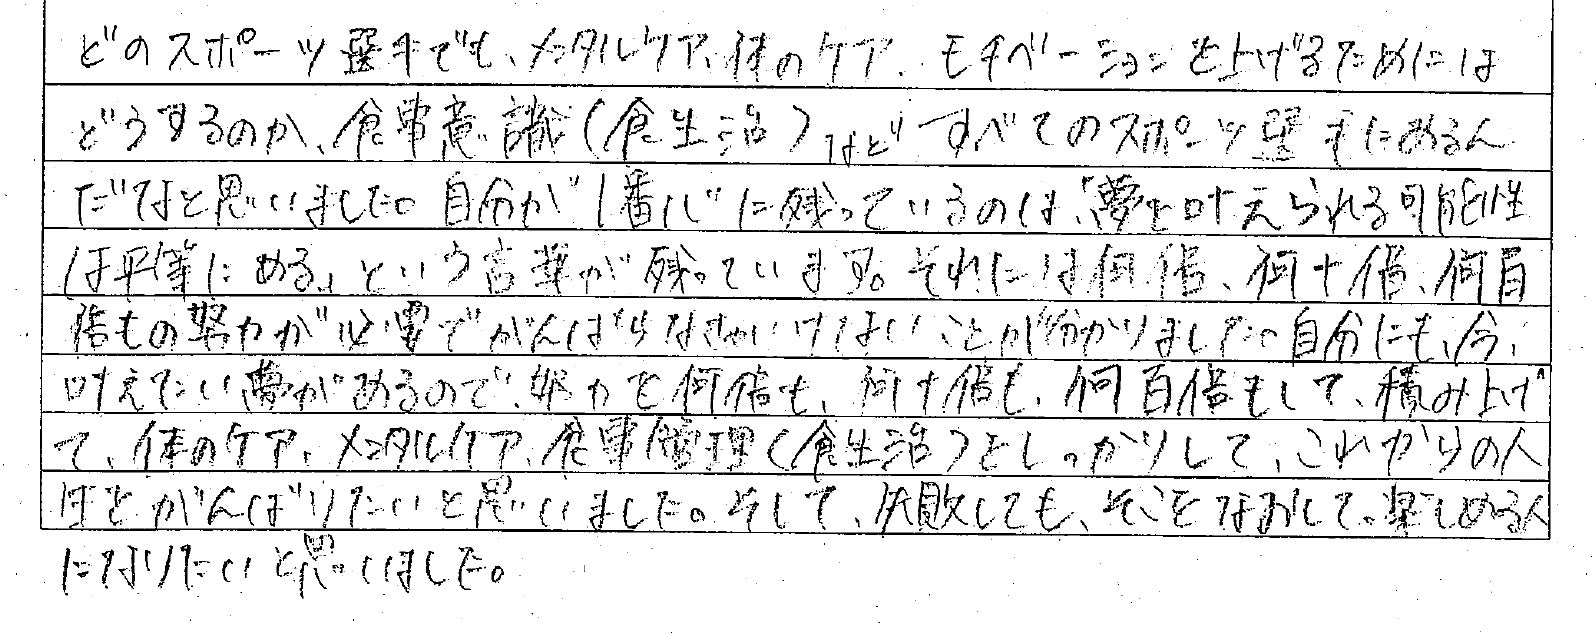 どのスポーツ選手でも、メンタルケア、体のケア、モチベーションを上げるためには
どうするのか、食事意識(食生活)などすべてのスポーツ選手にあるん
だなと思いました。自分が1番心に残っているのは、「夢を叶えられる可能性
は平等にある」という言葉が残っています。それには何倍、何十倍、何百
倍もの努力が必要でがんばらなきゃいけないことが分かりました。自分にも、今、
叶えたい夢があるので、努力を何倍も、何十倍も、何百倍もして、積み上げ
て、体のケア、メンタルケア、食事管理(食生活)をしっかりして、これからの人
生をがんばりたいと思いました。そして、失敗しても、そことなおして。楽しめる人
になりたいと思いました。